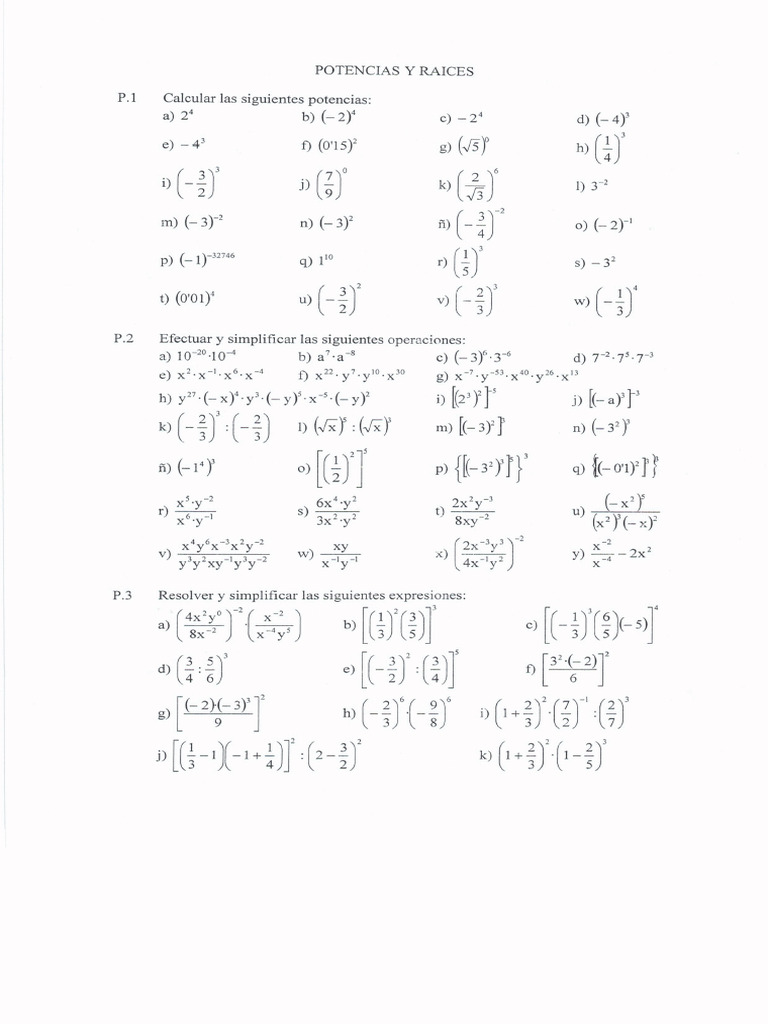 POTENCIAS Y RAICES
P.1 Calcular las siguientes potencias:
a) 2⁴ b) (− 2)⁴ c) − 2⁴ d) (− 4)³
e) − 4³ f) (0'15)² g) (√5)⁰ h) (1/4)³
i) (− 3/2)³ j) (7/9)⁰ k) (2/√3)⁶ l) 3⁻²
m) (− 3)⁻² n) (− 3)² ñ) (− 3/4)⁻² o) (− 2)⁻¹
p) (− 1)⁻³²⁷⁴⁶ q) 1¹⁰ r) (1/5)³ s) − 3²
t) (0'01)⁴ u) (− 3/2)² v) (− 2/3)³ w) (− 1/3)⁴
P.2 Efectuar y simplificar las siguientes operaciones:
a) 10⁻²⁰·10⁻⁴ b) a⁷·a⁻⁸ c) (− 3)⁶·3⁻⁶ d) 7⁻²·7⁵·7⁻³
e) x²·x⁻¹·x⁶·x⁻⁴ f) x²²·y⁷·y¹⁰·x³⁰ g) x⁻⁷·y⁻⁵³·x⁴⁰·y²⁶·x¹³
h) y²⁷·(− x)⁴·y³·(− y)⁵·x⁻⁵·(− y)² i) [(2³)²]⁻⁵ j) [(− a)³]⁻³
k) (− 2/3)³ : (− 2/3) l) (√x)⁵ : (√x)³ m) [(− 3)²]³ n) (− 3²)³
ñ) (− 1⁴)³ o) [(1/2)²]⁵ p) {[(− 3²)³]⁵}³ q) {[(− 0'1)²]³}³
r) x⁵·y⁻²/x⁶·y⁻¹ s) 6x⁴·y²/3x²·y² t) 2x²y⁻³/8xy⁻² u) (− x²)⁵/(x²)³(− x)²
v) x⁴y⁶x⁻³x²y⁻²/y³y²xy⁻¹y³y⁻² w) xy/x⁻¹y⁻¹ x) (2x⁻³y³/4x⁻¹y²)⁻² y) x⁻²/x⁻⁴ − 2x²
P.3 Resolver y simplificar las siguientes expresiones:
a) (4x²y⁰/8x⁻²)⁻²·(x⁻²/x⁻⁴y⁵) b) [(1/3)²(3/5)]³ c) [(− 1/3)³(6/5)(− 5)]⁴
d) (3/4 : 5/6)³ e) [(− 3/2)² : (3/4)]⁵ f) [3²·(− 2)/6]²
g) [(− 2)·(− 3)³/9]² h) (− 2/3)⁶·(− 9/8)⁶ i) (1 + 2/3)²·(7/2)⁻¹ : (2/7)³
j) [(1/3 − 1)(− 1 + 1/4)]² : (2 − 3/2)² k) (1 + 2/3)²·(1 − 2/5)³